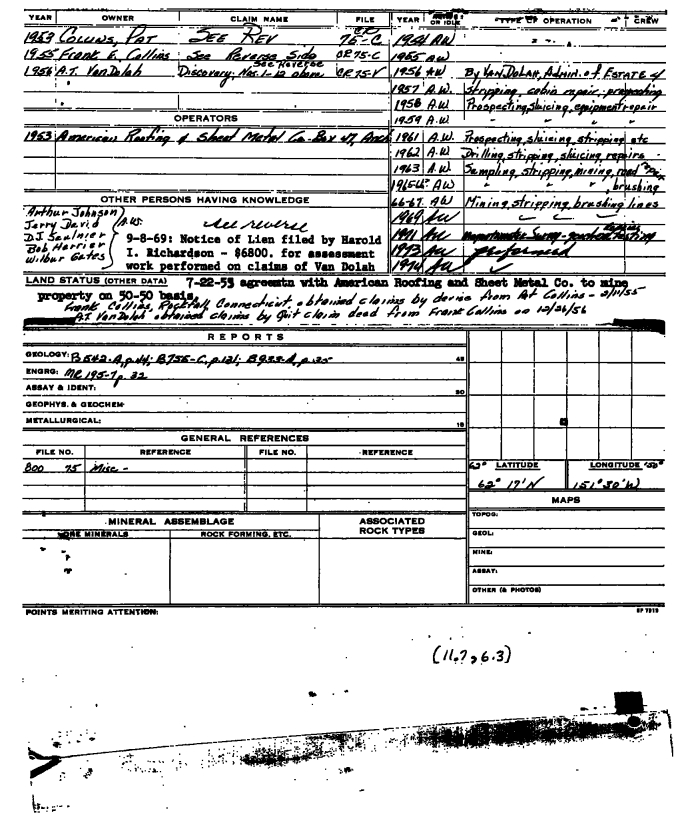 YEAR OWNER CLAIM NAME FILE
1953 Collins, Pat SEE REV CR 75-C
1955 Frank E. Collins See Reverse Side CR 75-C
See Reverse
1956 A.T. VanDolah Discovery; Nos. 1-12 above CR 75-V
OPERATORS
1953 American Roofing & Sheet Metal Co. Box 47, Anch
OTHER PERSONS HAVING KNOWLEDGE
Arthur Johnson
Jerry David
D.J. Saulnier
Bob Harrier
Wilbur Gates
A.W.
see reverse
9-8-69: Notice of Lien filed by Harold
I. Richardson - $6800. for assessment
work performed on claims of Van Dolah
YEAR OR IDLE TYPE OF OPERATION CREW
1954 AW
1955 AW
1956 AW By Van Dolah, Admin. of Estate of
1957 A.W. Stripping, cabin repair, prospecting
1958 A.W. Prospecting, sluicing, equipment repair
1959 AW " " "
1961 A.W. Prospecting, sluicing, stripping etc
1962 A.W. Drilling, stripping, sluicing, repairs
1963 A.W. Sampling, stripping, mining, road
brushing
66-67 AW Mining, stripping, brushing lines
1969 AW
1971 AW
1973 AW performed
1974 AW
LAND STATUS (OTHER DATA) 7-22-53 agreemtn with American Roofing and Sheet Metal Co. to mine
property on 50-50 basis.
Frank Collins, Rockfall, Connecticut, obtained claims by devise from Pat Collins - 2/11/55
A.T. VanDolah obtained claims by Quit claim deed from Frank Collins on 12/26/56
REPORTS
GEOLOGY: B 642-A, p.44; B 755-C, p.121; B 933-A, p.35
ENGRG: MR 195-7 p. 32
ASSAY & IDENT:
GEOPHYS. & GEOCHEM:
METALLURGICAL:
GENERAL REFERENCES
FILE NO. REFERENCE FILE NO. REFERENCE
800 75 Misc -
LATITUDE LONGITUDE
62° 17' N 151° 30' W
MAPS
TOPOG:
GEOL:
MINE:
ASSAY:
OTHER (& PHOTOS)
MINERAL ASSEMBLAGE ASSOCIATED ROCK TYPES
ORE MINERALS ROCK FORMING, ETC.
POINTS MERITING ATTENTION:
(11.7, 6.3)